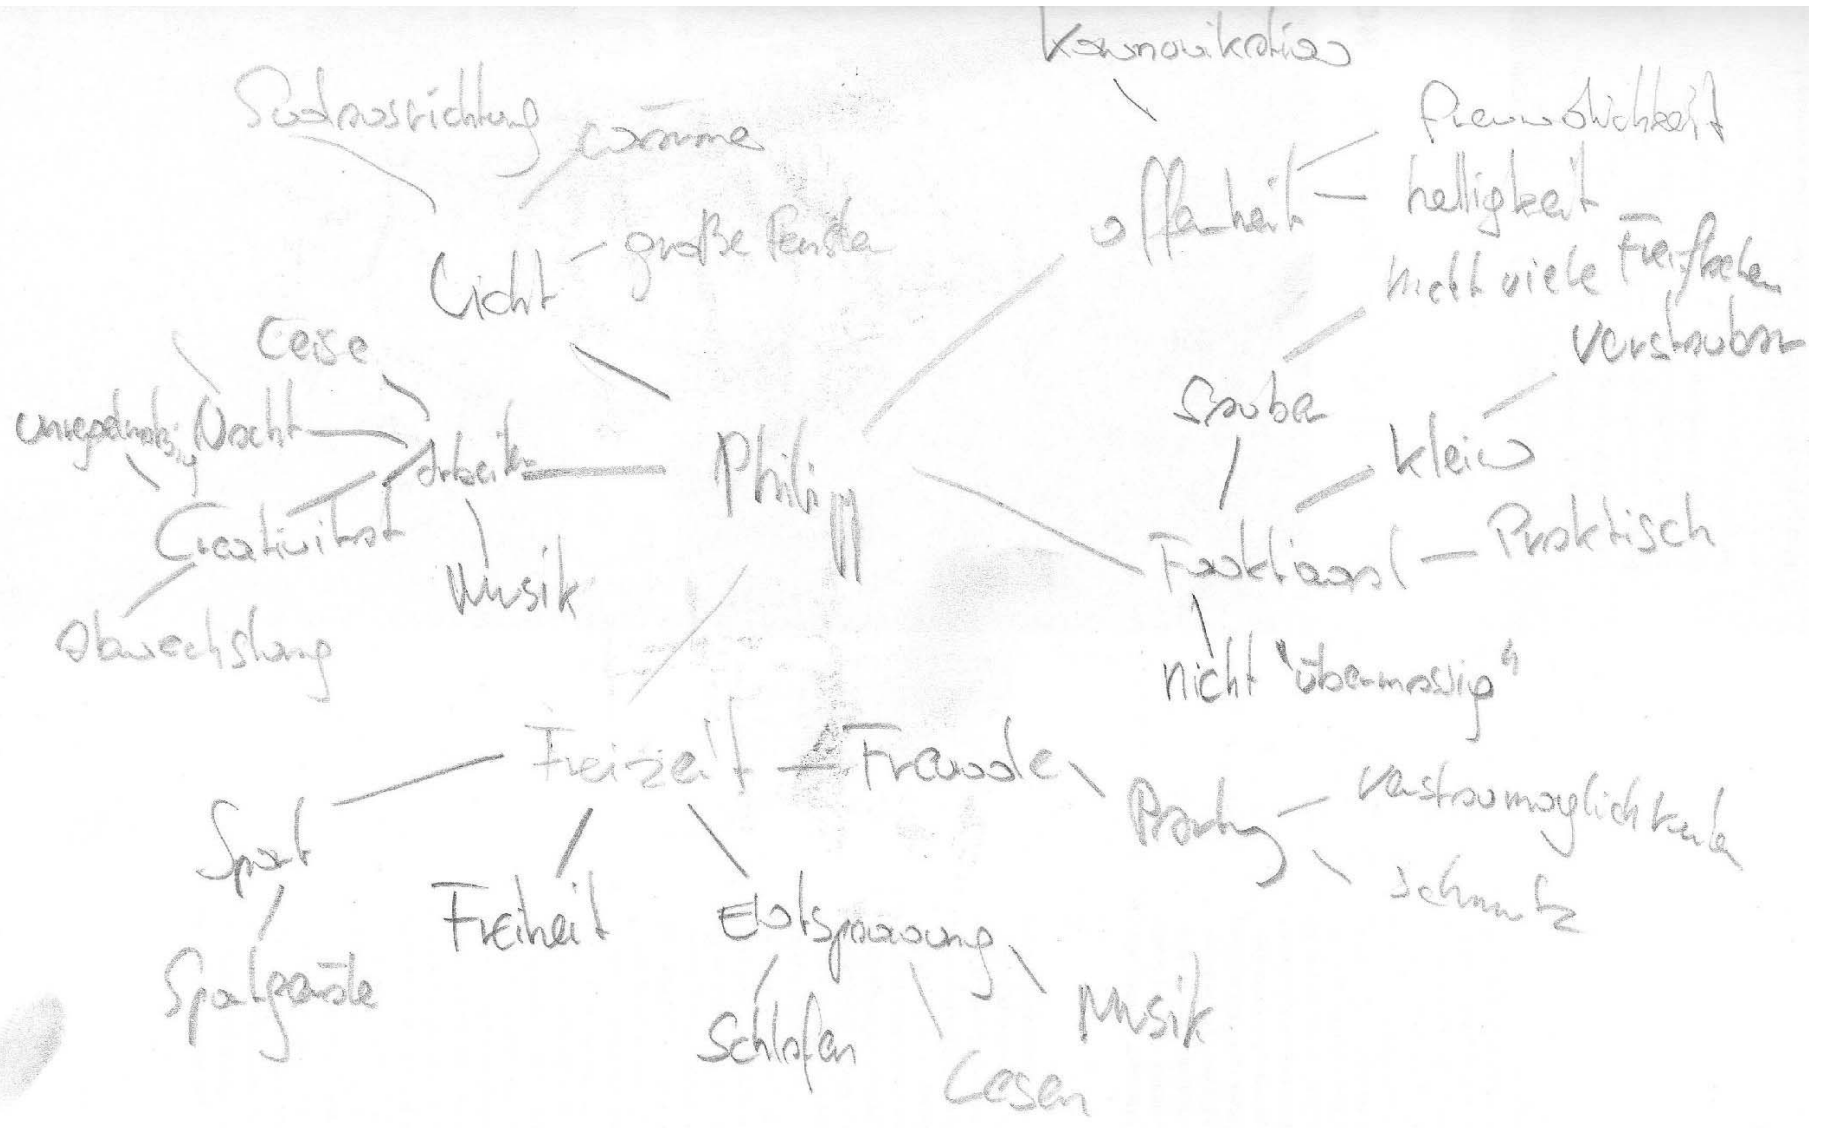 Kommunikation
Südausrichtung
Wärme
freundlichkeit
offenheit
helligkeit
große Fenster
Licht
nicht viele Freiflächen
verstaubar
Leise
Sauber
unregelmäßig
Nacht
Arbeiten
Philipp
klein
Creativität
Funktional
Praktisch
Musik
Abwechslung
nicht "übermässig"
Freizeit
Freunde
Party
verstaumöglichkeiten
Sport
schmutz
Freiheit
Entspannung
Sportgeräte
Schlafen
Musik
Lesen